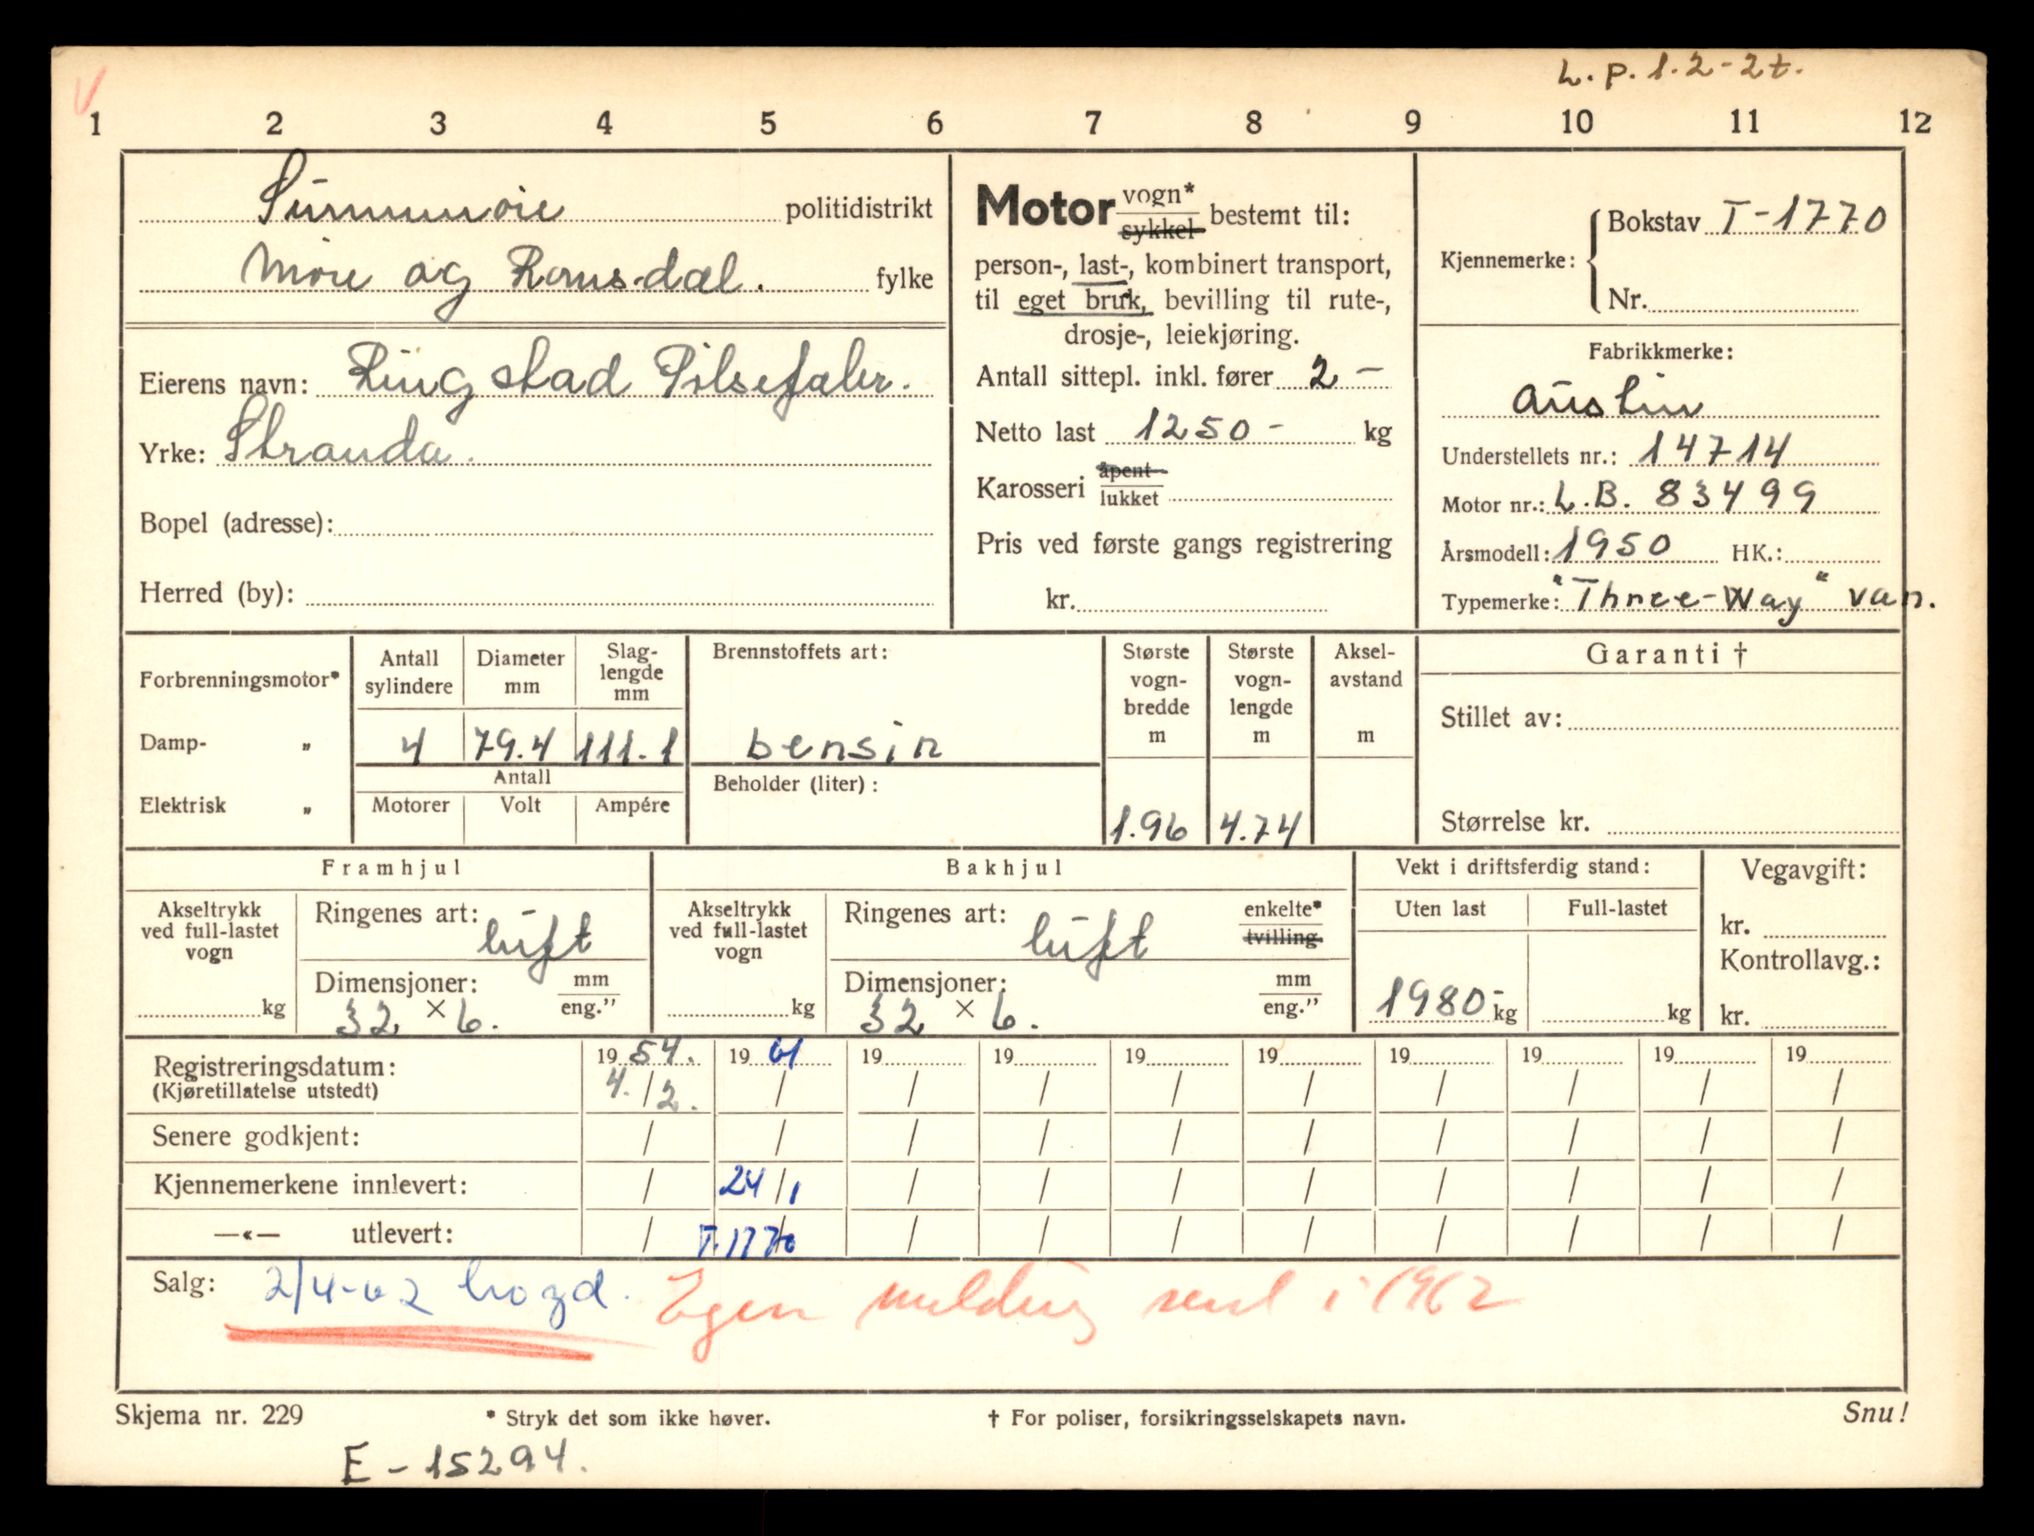 V
L.p. 1.2-2t.
1 2 3 4 5 6 7 8 9 10 11 12
Sunnmøre politidistrikt
Møre og Romsdal. fylke
Eierens navn: Ringstad Pølsefabr.
Yrke: Stranda.
Bopel (adresse):
Herred (by):
Motor vogn* sykkel bestemt til:
person-, last-, kombinert transport,
til eget bruk, bevilling til rute-,
drosje-, leiekjøring.
Antall sittepl. inkl. fører 2 -
Netto last 1250 - kg
Karosseri åpent lukket
Pris ved første gangs registrering
kr.
Kjennemerke: Bokstav T-1770
Nr.
Fabrikkmerke:
Austin
Understellets nr.: 14714
Motor nr.: L.B. 83499
Årsmodell: 1950 HK.:
Typemerke: "Three-Way" van.
Forbrenningsmotor*
Damp- „
Elektrisk „
Antall sylindere
Diameter mm
Slag-
lengde
mm
4 79.4 111.1
Antall
Motorer Volt Ampére
Brennstoffets art:
bensin
Beholder (liter):
Største
vogn-
bredde
m
1.96
Største
vogn-
lengde
m
4.74
Aksel-
avstand
m
Garanti †
Stillet av:
Størrelse kr.
Framhjul
Akseltrykk
ved full-lastet
vogn
kg
Ringenes art:
luft
Dimensjoner: mm
32 × 6. eng.”
Bakhjul
Akseltrykk
ved full-lastet
vogn
kg
Ringenes art: enkelte*
luft tvilling.
Dimensjoner: mm
32 × 6. eng.”
Vekt i driftsferdig stand:
Uten last Full-lastet
1980- kg kg
Vegavgift:
kr.
Kontrollavg.:
kr.
Registreringsdatum: 19 54. 19 61 19 19 19 19 19 19 19 19
(Kjøretillatelse utstedt) 4. / 2. / / / / / / / / /
Senere godkjent: / / / / / / / / / /
Kjennemerkene innlevert: / 24 / 1 / / / / / / / /
—«— utlevert: / T.1770 / / / / / / / /
Salg: 2/4-62 Egen melding send i 1962
Skjema nr. 229 * Stryk det som ikke høver. † For poliser, forsikringsselskapets navn. Snu!
E - 15294.